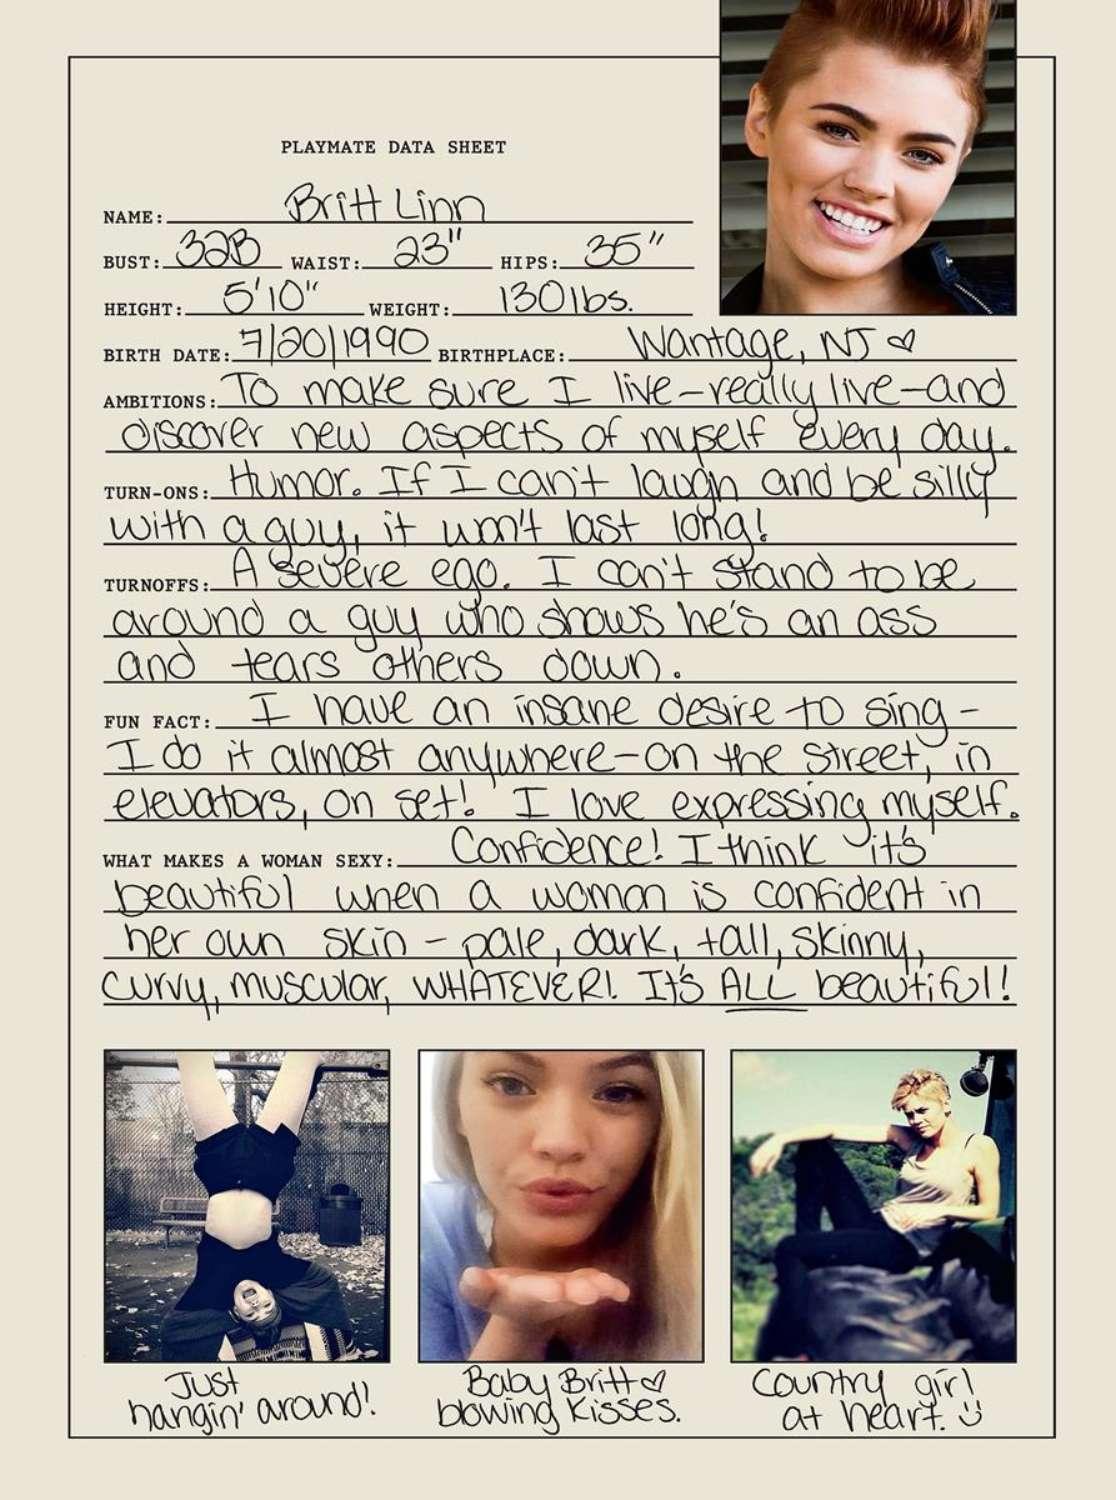 PLAYMATE DATA SHEET
NAME: Britt Linn
BUST: 32B WAIST: 23" HIPS: 35"
HEIGHT: 5'10" WEIGHT: 130 lbs.
BIRTH DATE: 7/20/1990 BIRTHPLACE: Wantage, NJ ♡
AMBITIONS: To make sure I live—really live—and
discover new aspects of myself every day.
TURN-ONS: Humor. If I can't laugh and be silly
with a guy, it won't last long!
TURNOFFS: A severe ego. I can't stand to be
around a guy who shows he's an ass
and tears others down.
FUN FACT: I have an insane desire to sing –
I do it almost anywhere—on the street, in
elevators, on set! I love expressing myself.
WHAT MAKES A WOMAN SEXY: Confidence! I think it's
beautiful when a woman is confident in
her own skin – pale, dark, tall, skinny,
curvy, muscular, WHATEVER! It's ALL beautiful!
Just
hangin' around!
Baby Britt ♡
blowing kisses.
Country girl
at heart. :)